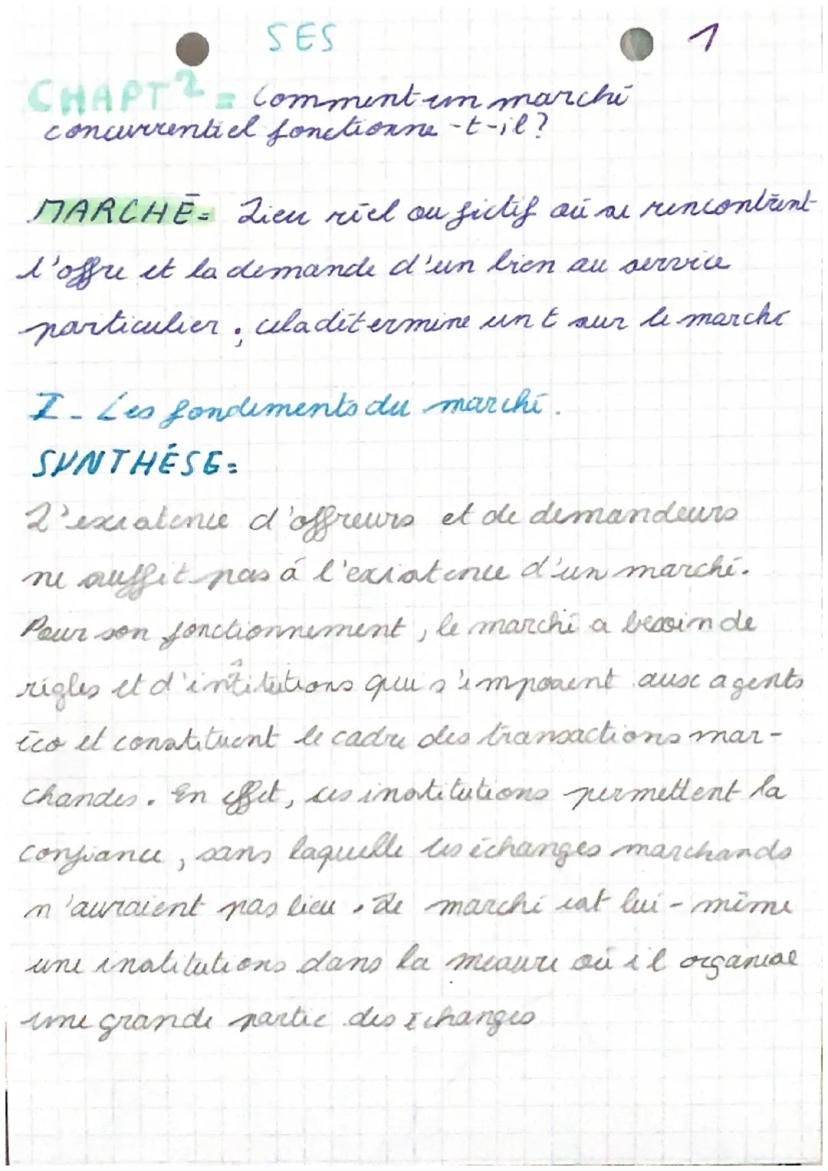 SES
1
CHAPT 2 = Comment un marché
concurrentiel fonctionne-t-il ?
MARCHÉ = Lieu réel ou fictif où se rencontrent
l'offre et la demande d'un bien ou service
particulier ; cela détermine un t sur le marché
I - Les fondements du marché.
SYNTHÉSE =
L'existence d'offreurs et de demandeurs
ne suffit pas á l'existence d'un marché.
Pour son fonctionnement, le marché a besoin de
régles et d'intitutions qui s'imposent aux agents
éco et constituent le cadre des transactions mar-
chandes. En effet, ces institutions permettent la
confiance, sans laquelle les échanges marchands
n'auraient pas lieu. Le marché est lui-même
une institutions dans la mesure où il organise
une grande partie des échanges